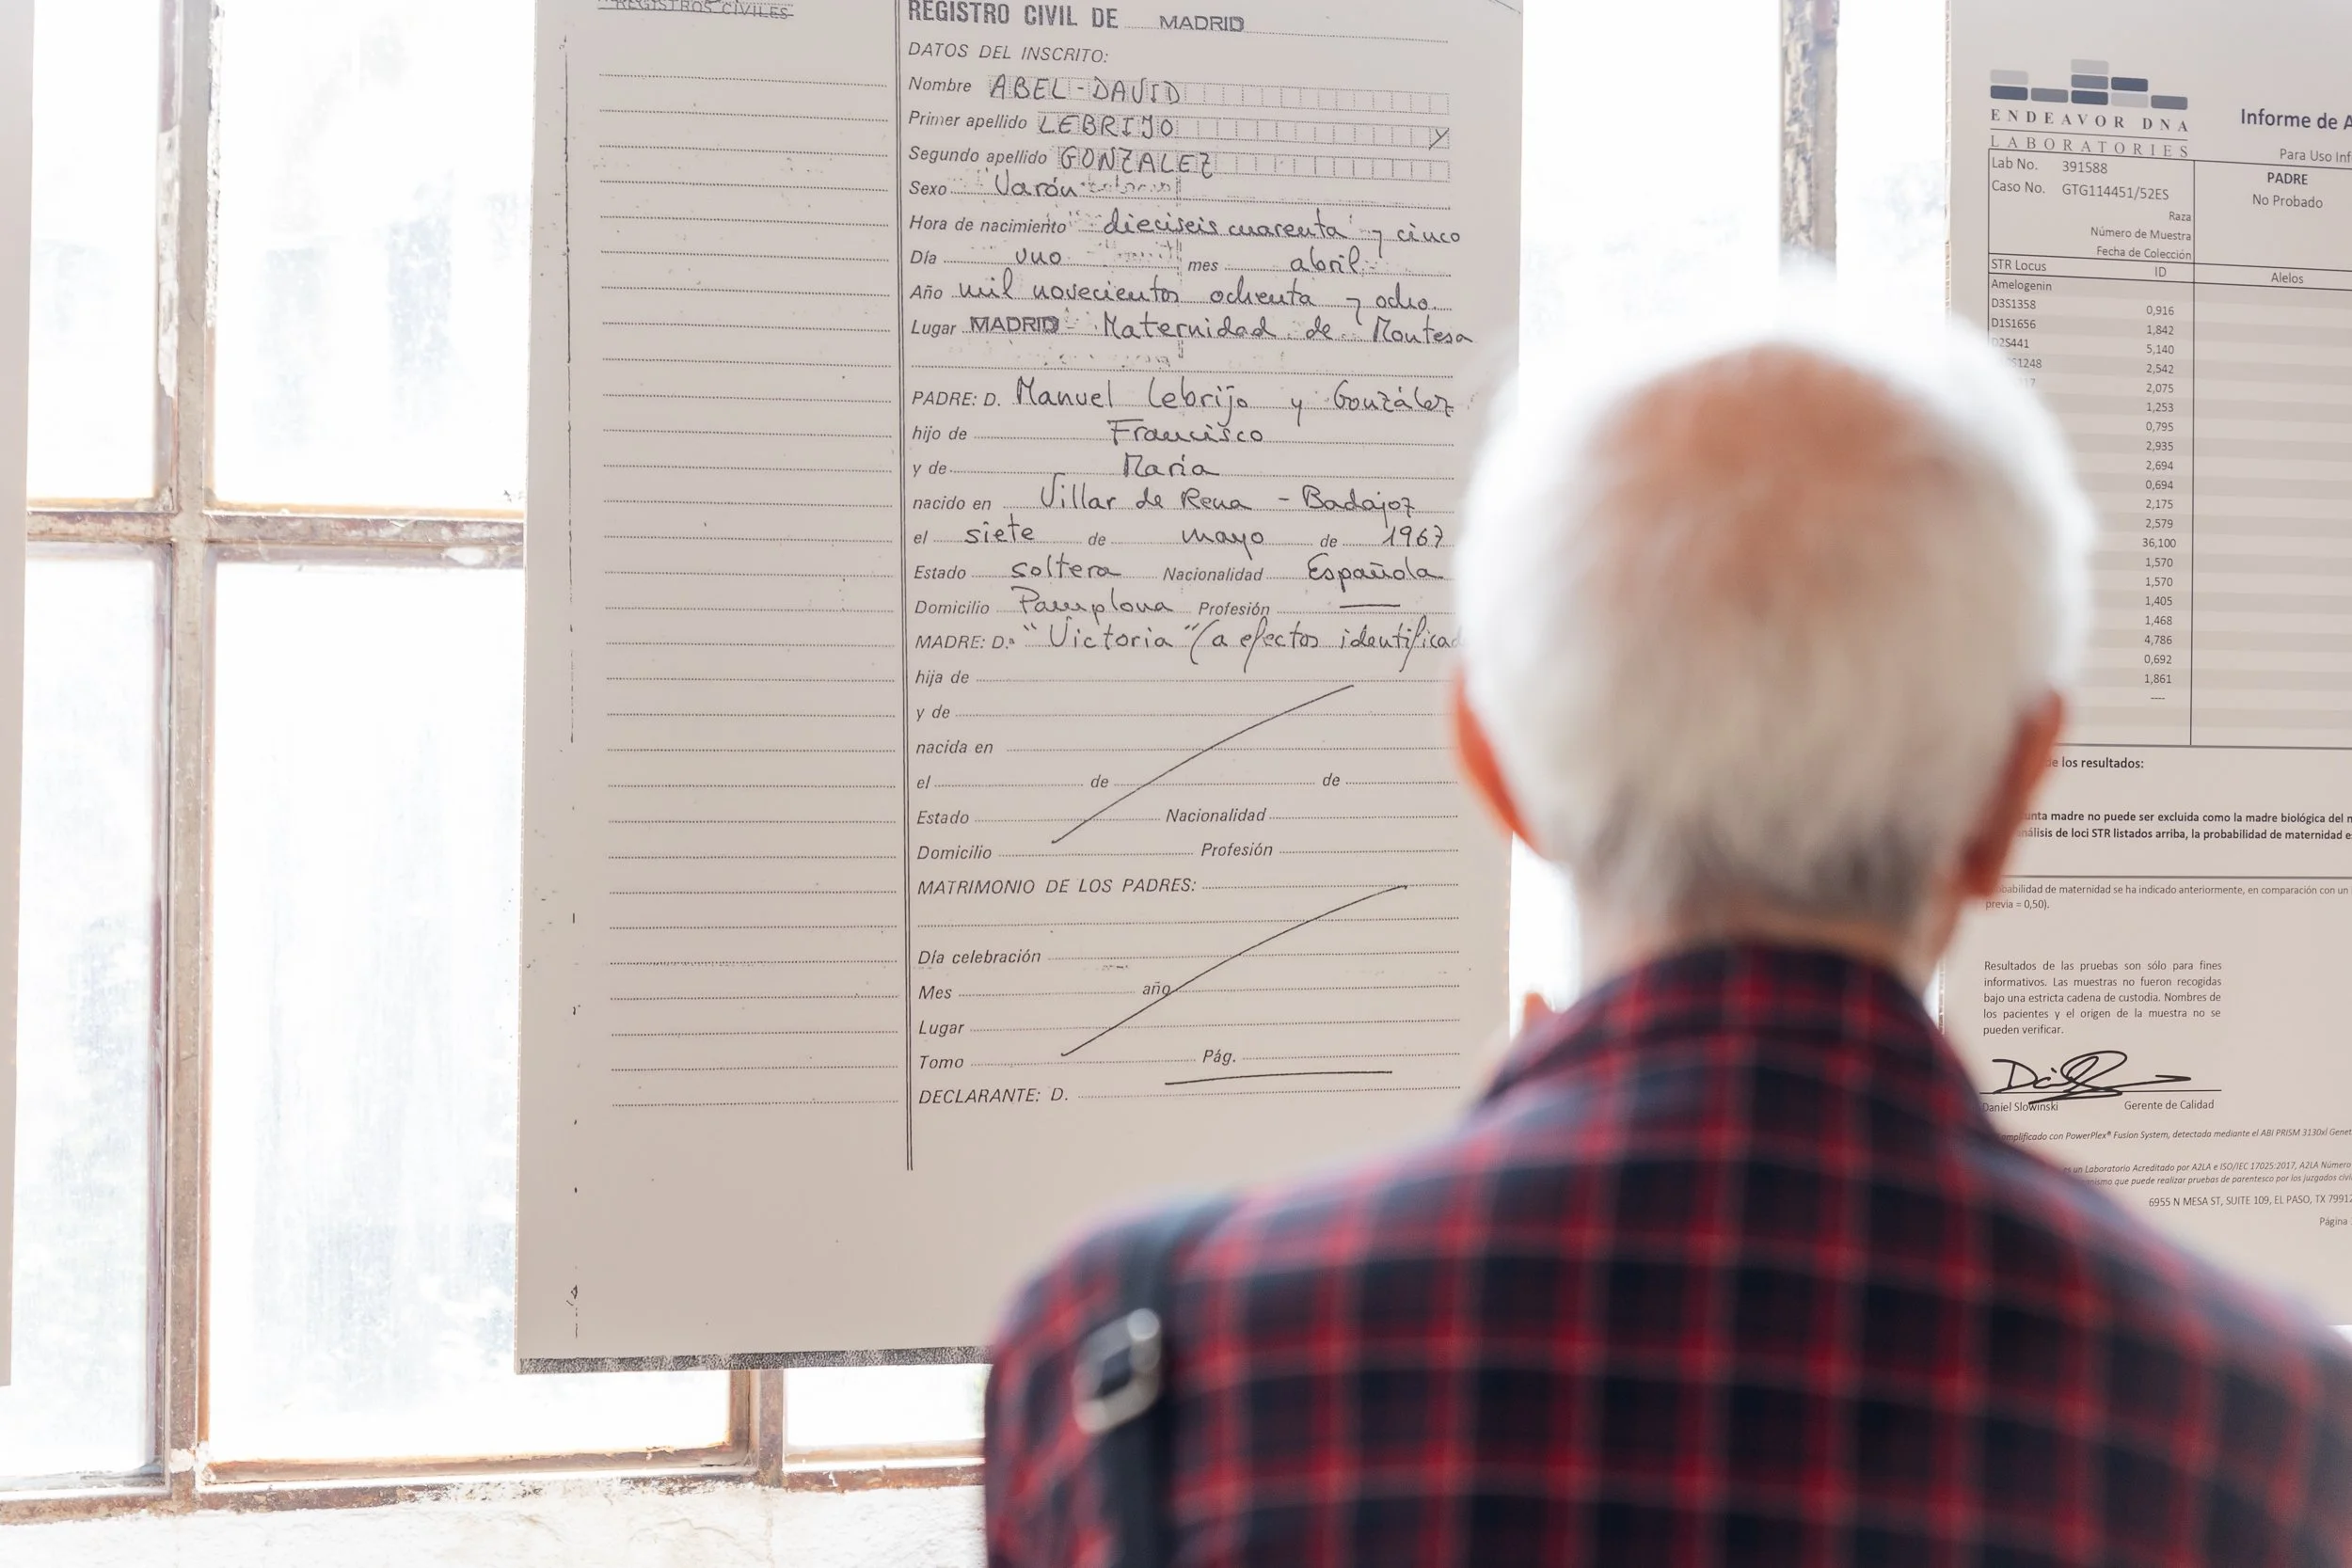 REGISTROS CIVILES
REGISTRO CIVIL DE MADRID
DATOS DEL INSCRITO:
Nombre ABEL-DAVID
Primer apellido LEBRIJO Y
Segundo apellido GONZALEZ
Sexo Varón
Hora de nacimiento dieciseis cuarenta y cinco
Día uno mes abril
Año mil novecientos ochenta y ocho
Lugar MADRID Maternidad de Montesa
PADRE: D. Manuel Lebrijo y González
hijo de Francisco
y de María
nacido en Villar de Rena - Badajoz
el siete de mayo de 1967
Estado soltera Nacionalidad Española
Domicilio Pamplona Profesión
MADRE: D.ª "Victoria" (a efectos
hija de
y de
nacida en
el de de
Estado Nacionalidad
Domicilio Profesión
MATRIMONIO DE LOS PADRES:
Día celebración
Mes año
Lugar
Tomo Pág.
DECLARANTE: D.
ENDEAVOR DNA
LABORATORIES
Informe de
Para Uso
Lab No. 391588
PADRE
Caso No. GTG114451/52ES
No Probado
Raza
Número de Muestra
Fecha de Colección
STR Locus ID Alelos
Amelogenin
D3S1358 0,916
D1S1656 1,842
D2S441 5,140
2,542
2,075
1,253
0,795
2,935
2,694
0,694
2,175
2,579
36,100
1,570
1,570
1,405
1,468
4,786
0,692
1,861
----
de los resultados:
madre no puede ser excluida como la madre biológica del
de loci STR listados arriba, la probabilidad de maternidad
de maternidad se ha indicado anteriormente, en comparación con un
previa = 0,50).
Resultados de las pruebas son sólo para fines
informativos. Las muestras no fueron recogidas
bajo una estricta cadena de custodia. Nombres de
los pacientes y el origen de la muestra no se
pueden verificar.
Daniel Slowinski Gerente de Calidad
con PowerPlex® Fusion System, detectada mediante el ABI PRISM 3130xl
un Laboratorio Acreditado por A2LA e ISO/IEC 17025:2017, A2LA Número
que puede realizar pruebas de parentesco por los juzgados
6955 N MESA ST, SUITE 109, EL PASO, TX 79912
Página